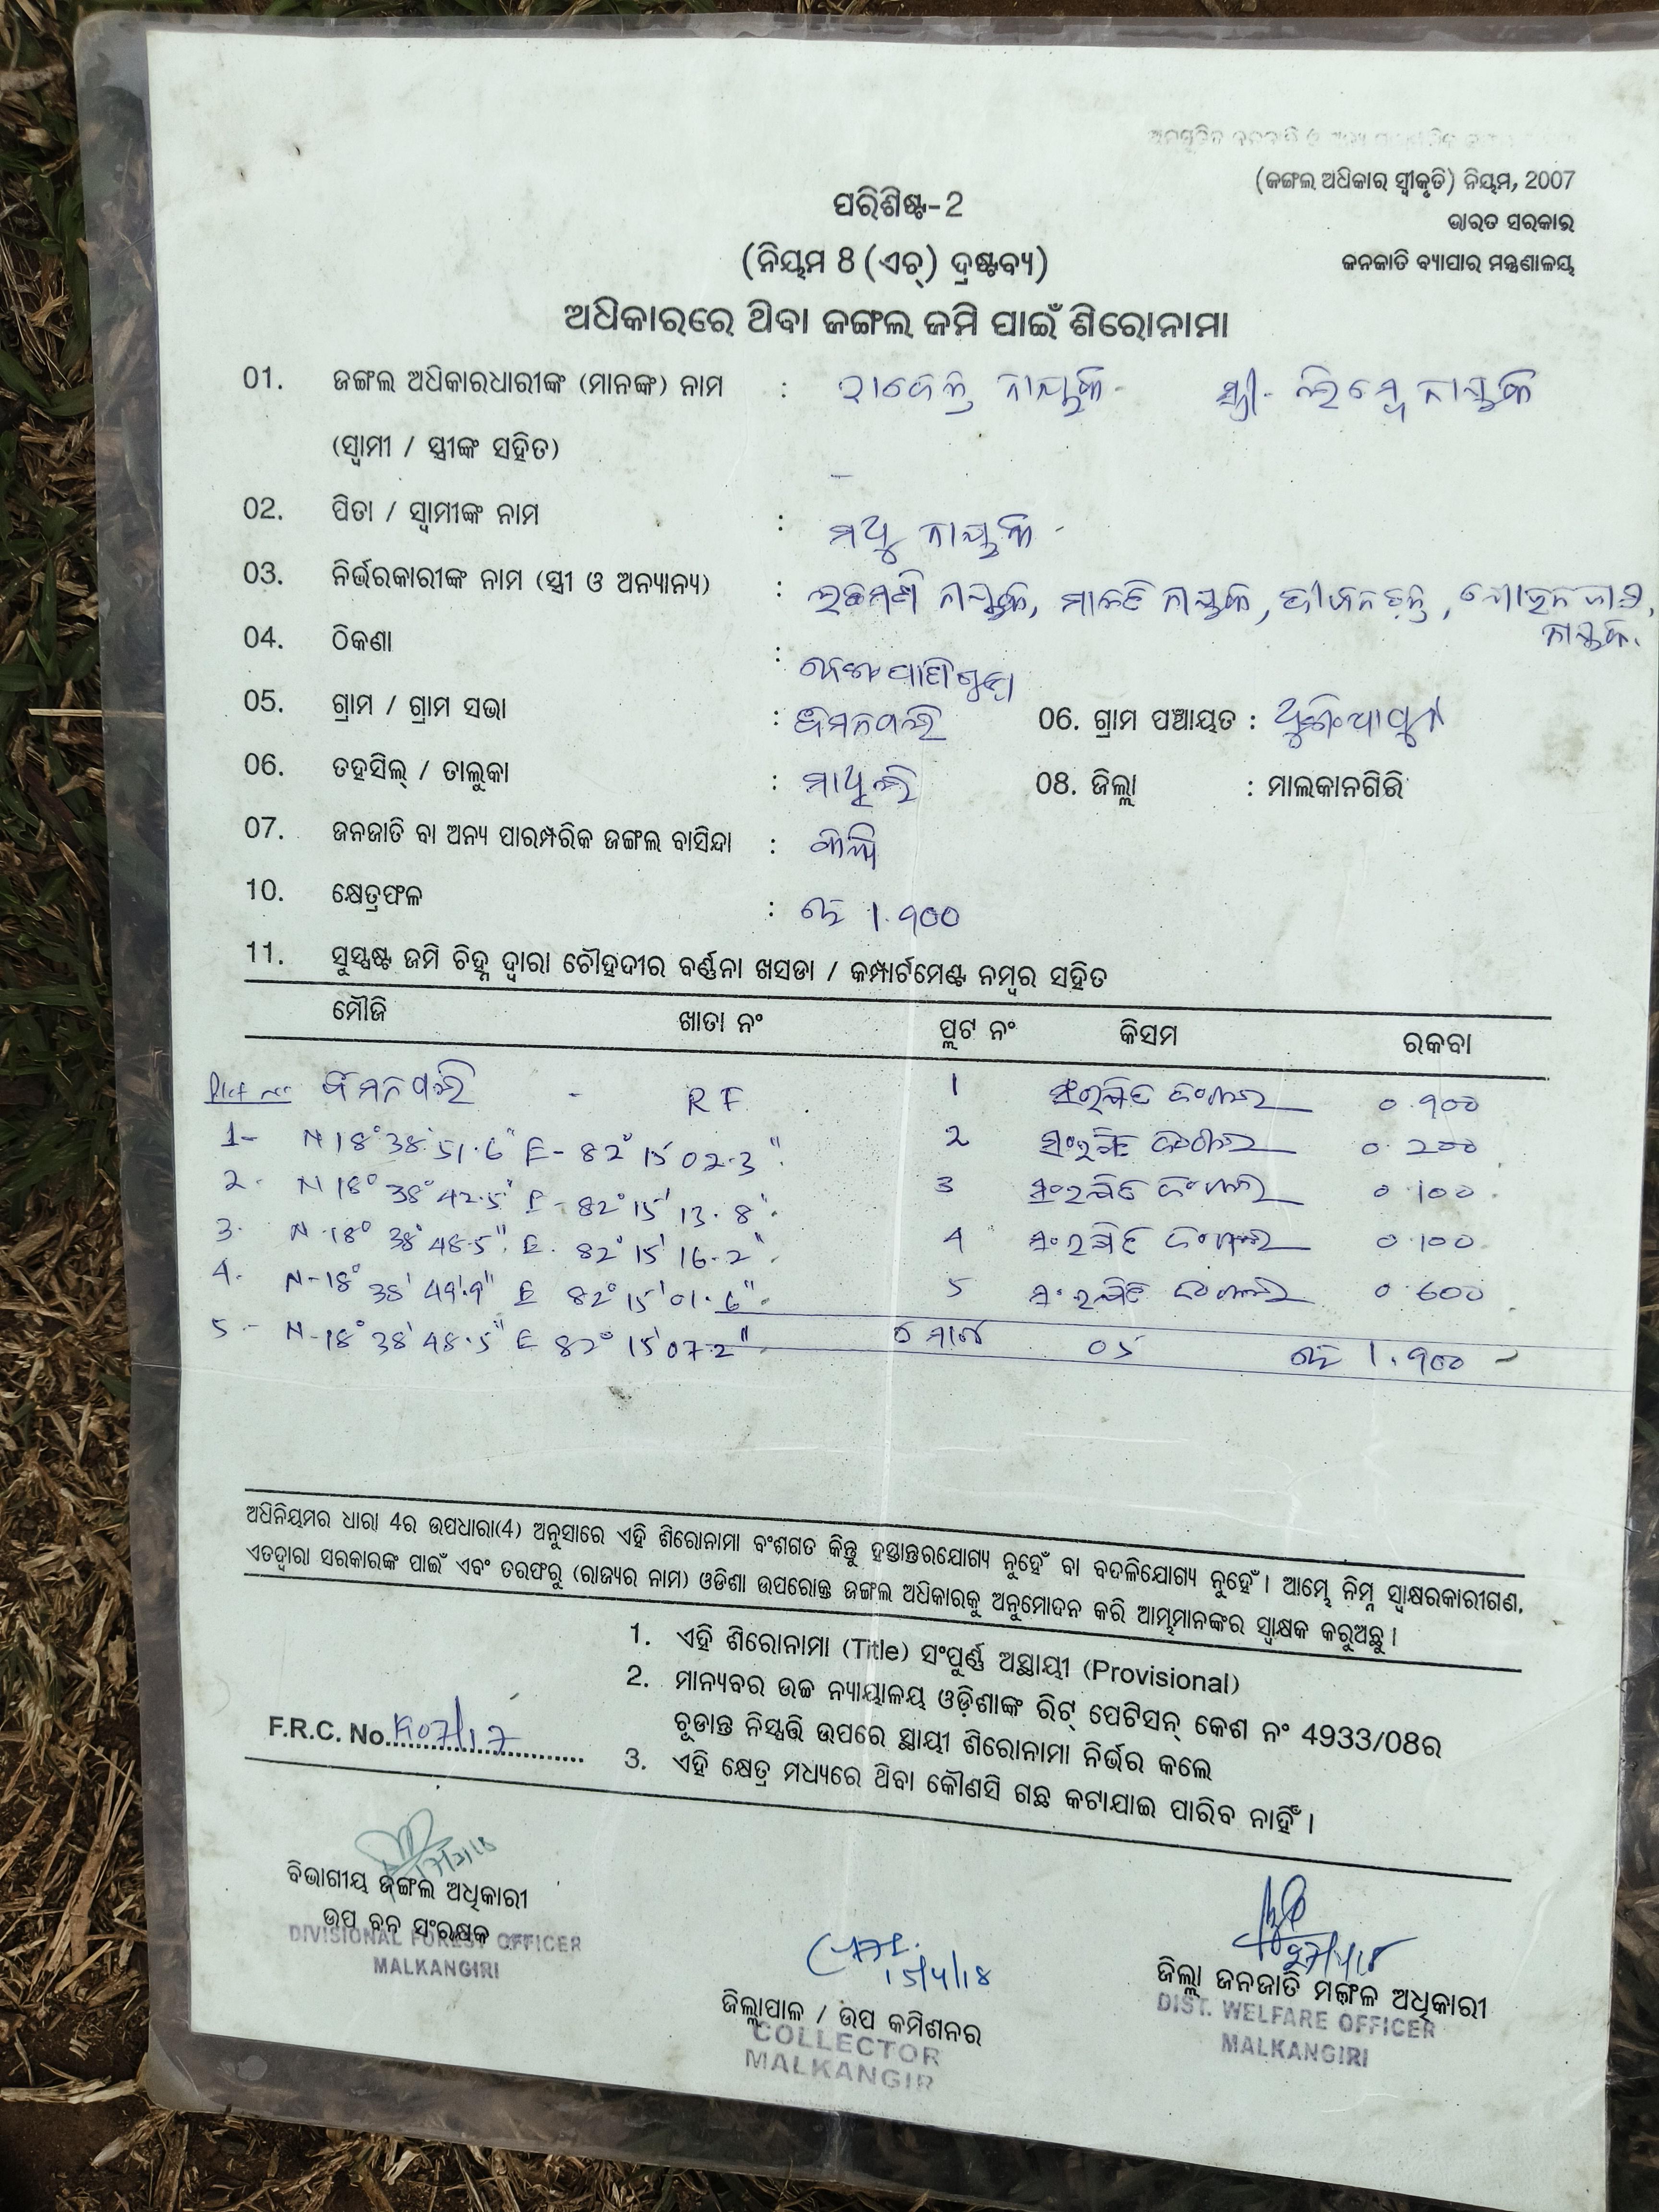 (ଜଙ୍ଗଲ ଅଧିକାର ସ୍ୱୀକୃତି) ନିୟମ, 2007
ଭାରତ ସରକାର
ଜନଜାତି ବ୍ୟାପାର ମନ୍ତ୍ରଣାଳୟ
ପରିଶିଷ୍ଟ-2
(ନିୟମ 8 (ଏଚ୍) ଦ୍ରଷ୍ଟବ୍ୟ)
ଅଧିକାରରେ ଥିବା ଜଙ୍ଗଲ ଜମି ପାଇଁ ଶିରୋନାମା
01. ଜଙ୍ଗଲ ଅଧିକାରଧାରୀଙ୍କ (ମାନଙ୍କ) ନାମ : ନାୟକ ସ୍ତ୍ରୀ- ନାୟକ
(ସ୍ୱାମୀ / ସ୍ତ୍ରୀଙ୍କ ସହିତ)
02. ପିତା / ସ୍ୱାମୀଙ୍କ ନାମ : ନାୟକ
03. ନିର୍ଭରକାରୀଙ୍କ ନାମ (ସ୍ତ୍ରୀ ଓ ଅନ୍ୟାନ୍ୟ) : ନାୟକ, ନାୟକ,
ନାୟକ.
04. ଠିକଣା :
05. ଗ୍ରାମ / ଗ୍ରାମ ସଭା : 06. ଗ୍ରାମ ପଞ୍ଚାୟତ :
06. ତହସିଲ୍ / ତାଲୁକା : ମାଥିଲି 08. ଜିଲ୍ଲା : ମାଲକାନଗିରି
07. ଜନଜାତି ବା ଅନ୍ୟ ପାରମ୍ପରିକ ଜଙ୍ଗଲ ବାସିନ୍ଦା :
10. କ୍ଷେତ୍ରଫଳ : 1.900
11. ସୁସ୍ପଷ୍ଟ ଜମି ଚିହ୍ନ ଦ୍ୱାରା ଚୌହଦୀର ବର୍ଣ୍ଣନା ଖସଡା / କମ୍ପାର୍ଟମେଣ୍ଟ ନମ୍ବର ସହିତ
ମୌଜି ଖାତା ନଂ ପ୍ଲଟ ନଂ କିସମ ରକବା
RF 1 ସଂରକ୍ଷିତ ଜଂଗଲ 0.900
1- N 18° 38' 51.6" E- 82° 15' 02.3" 2 ସଂରକ୍ଷିତ ଜଂଗଲ 0.200
2. N 18° 38' 42.5" E- 82° 15' 13.8" 3 ସଂରକ୍ଷିତ ଜଂଗଲ 0.100
3. N-18° 38' 48.5" E. 82° 15' 16.2" 4 ସଂରକ୍ଷିତ ଜଂଗଲ 0.100
4. N-18° 38' 49.9" E 82° 15' 01.6" 5 ସଂରକ୍ଷିତ ଜଂଗଲ 0.600
5- N-18° 38' 48.5" E 82° 15' 07.2" 05 1.900
ଅଧିନିୟମର ଧାରା 4ର ଉପଧାରା(4) ଅନୁସାରେ ଏହି ଶିରୋନାମା ବଂଶଗତ କିନ୍ତୁ ହସ୍ତାନ୍ତରଯୋଗ୍ୟ ନୁହେଁ ବା ବଦଳିଯୋଗ୍ୟ ନୁହେଁ। ଆମ୍ଭେ ନିମ୍ନ ସ୍ୱାକ୍ଷରକାରୀଗଣ,
ଏତଦ୍ୱାରା ସରକାରଙ୍କ ପାଇଁ ଏବଂ ତରଫରୁ (ରାଜ୍ୟର ନାମ) ଓଡିଶା ଉପରୋକ୍ତ ଜଙ୍ଗଲ ଅଧିକାରକୁ ଅନୁମୋଦନ କରି ଆମ୍ଭମାନଙ୍କର ସ୍ୱାକ୍ଷକ କରୁଅଛୁ।
1. ଏହି ଶିରୋନାମା (Title) ସଂପୂର୍ଣ୍ଣ ଅସ୍ଥାୟୀ (Provisional)
2. ମାନ୍ୟବର ଉଚ୍ଚ ନ୍ୟାୟାଳୟ ଓଡ଼ିଶାଙ୍କ ରିଟ୍ ପେଟିସନ୍ କେଶ ନଂ 4933/08ର
ଚୂଡାନ୍ତ ନିସ୍ପତ୍ତି ଉପରେ ସ୍ଥାୟୀ ଶିରୋନାମା ନିର୍ଭର କଲେ
3. ଏହି କ୍ଷେତ୍ର ମଧ୍ୟରେ ଥିବା କୌଣସି ଗଛ କଟାଯାଇ ପାରିବ ନାହିଁ।
F.R.C. No. 1907/17
ବିଭାଗୀୟ ଜଙ୍ଗଲ ଅଧିକାରୀ
ଉପ ବନ ସଂରକ୍ଷକ
DIVISIONAL FOREST OFFICER
MALKANGIRI
15/4/18
ଜିଲ୍ଲାପାଳ / ଉପ କମିଶନର
COLLECTOR
MALKANGIR
27/4/18
ଜିଲ୍ଲା ଜନଜାତି ମଙ୍ଗଳ ଅଧିକାରୀ
DIST. WELFARE OFFICER
MALKANGIRI